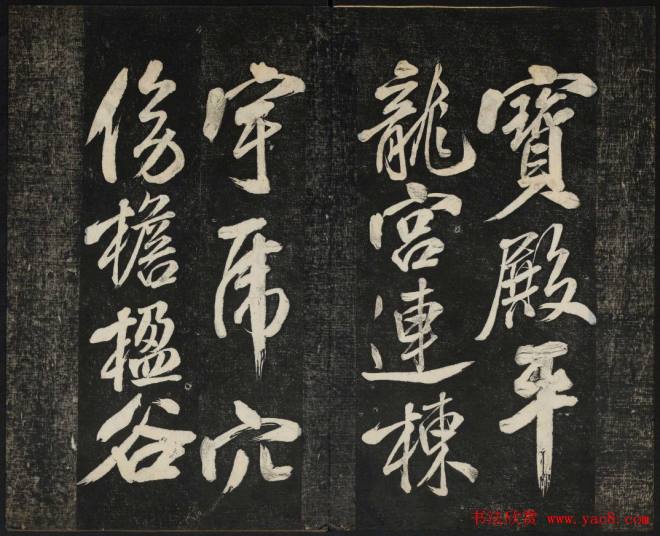 寶殿平
龍宮連棟
宇虎穴
傍檐楹谷
书法欣赏 www.yac8.com